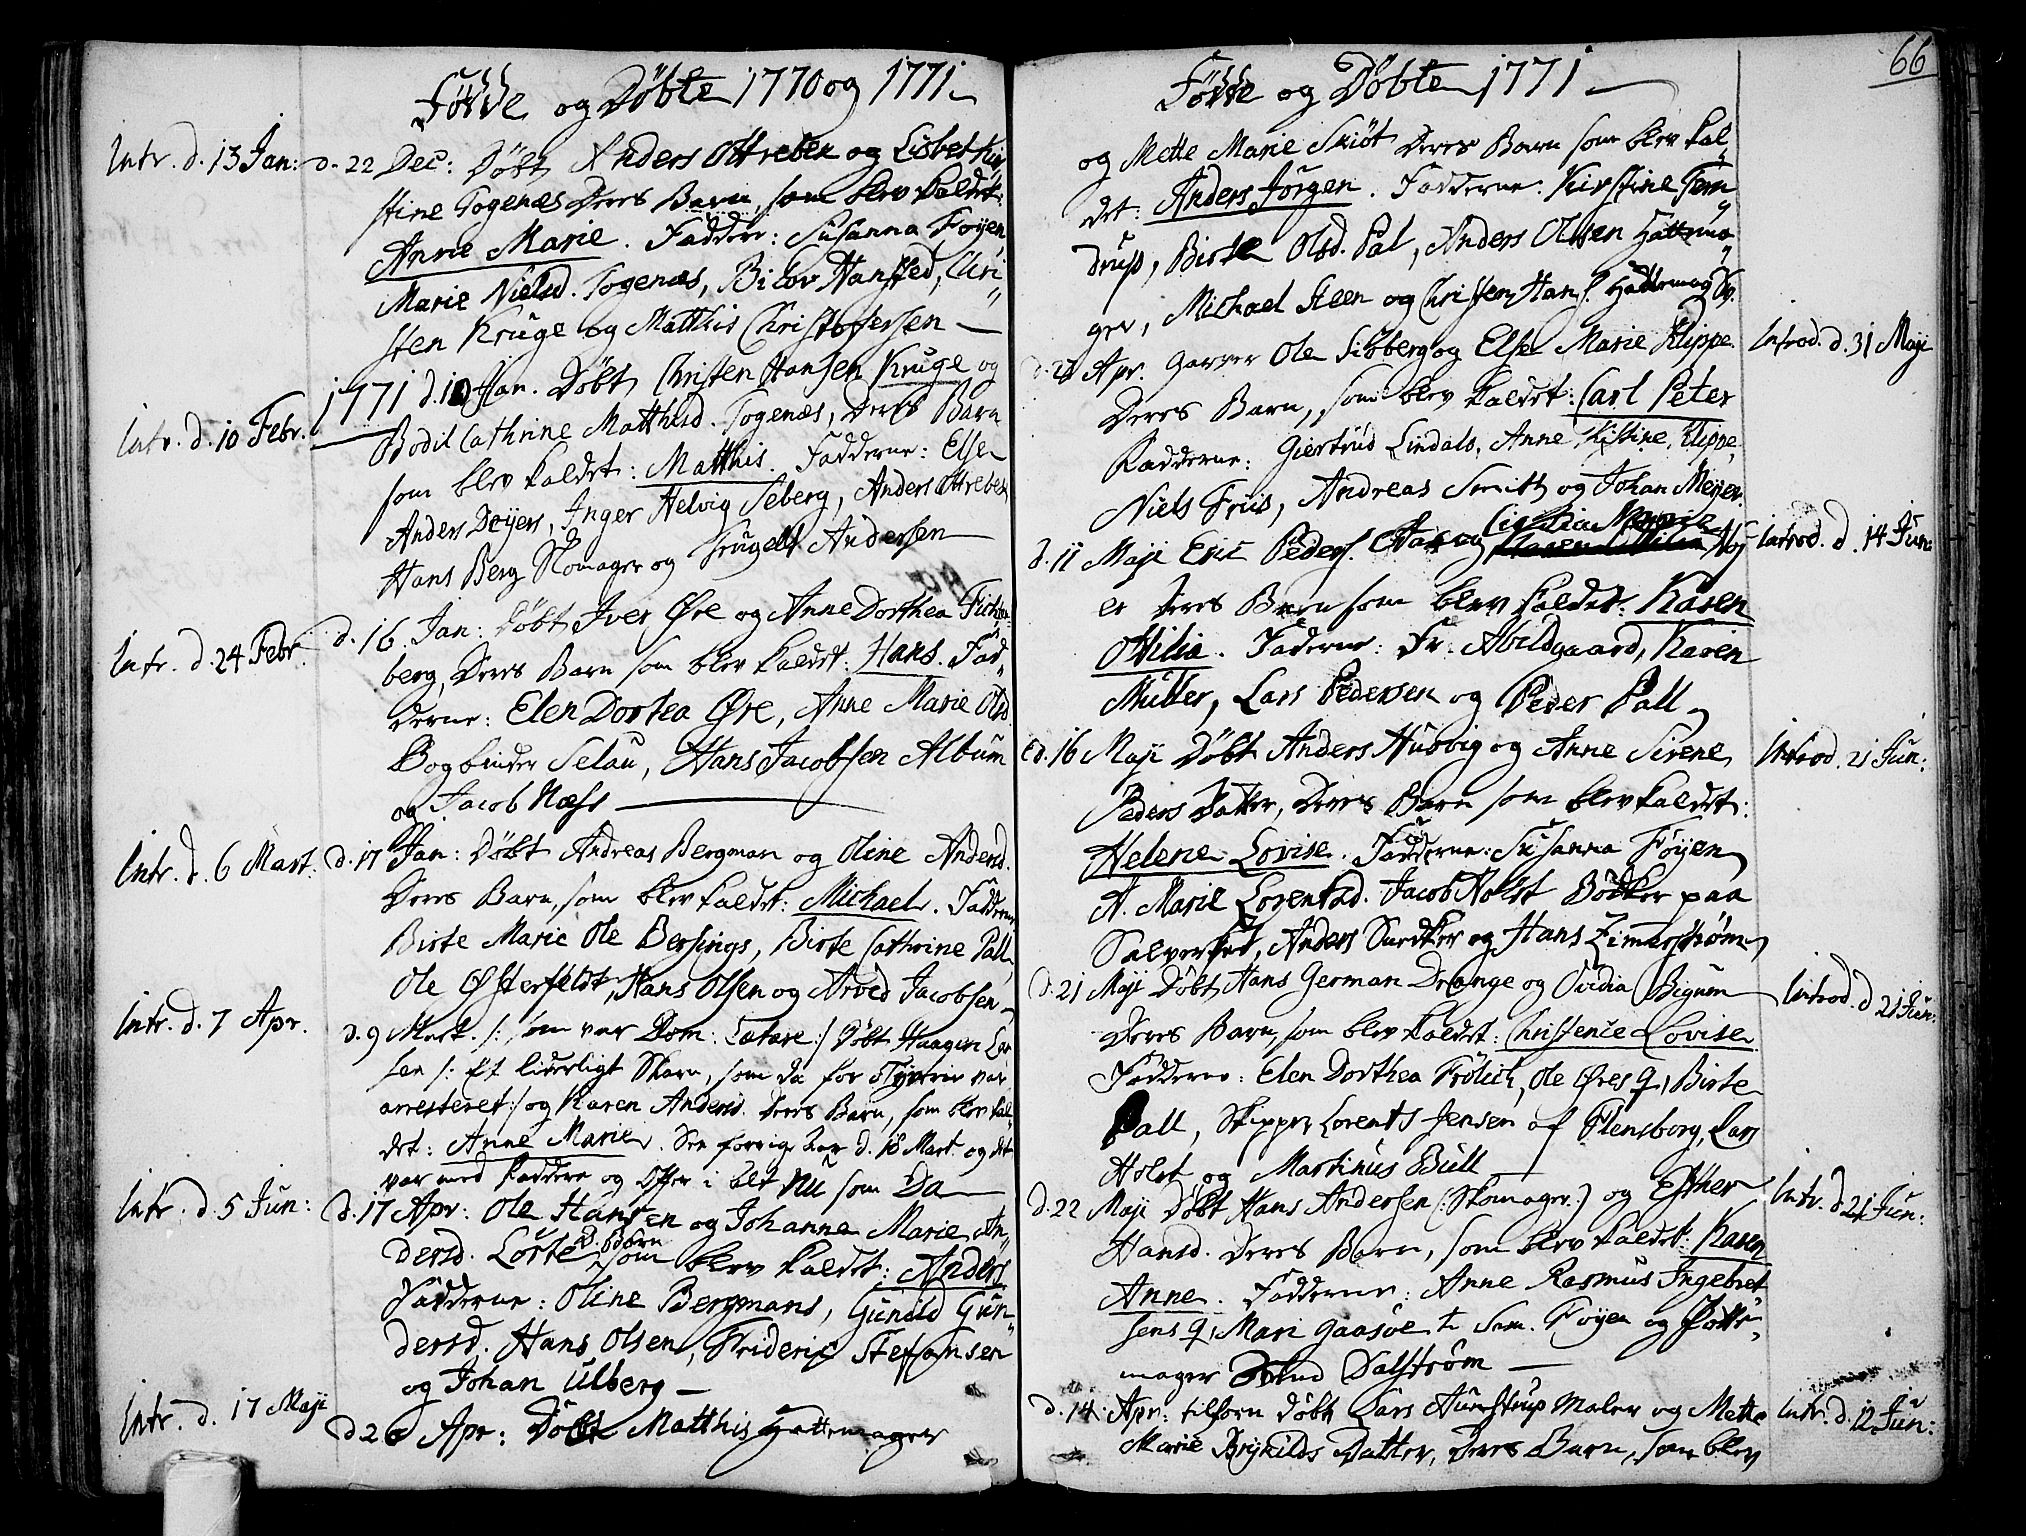 Fødde og Døbte 1770 og 1771
Intr. d. 13 Jan: d. 22 Dec: Døbt Anders Ottrebek og Lisbeth Kir
stine Togenæs Deres Barn, som blev kaldet:
Anne Marie. Faddere: Susanna Føyen
Marie Nielsd. Togenæs, Hansted, Chri
sten Kruge og Matthis Christofersen
Intr. d. 10 Febr. 1771 d. 10 Jan. Døbt Christen Hansen Kruge og
Bodil Cathrine Matthisd. Togenæs, Deres Barn
som blev kaldet: Matthis. Fadderne: Else
Anders Deyers, Inger Helvig Seberg, Anders Ottrebek
Hans Berg Skomager og Trugels Andersen
Intr. d. 24 Febr. d. 16 Jan: Døbt Iver Øre og Anne Dorthea
berg, Deres Barn som blev kaldet: Hans. Fad
derne: Elen Dortea Øre, Anne Marie Olsd.
Bogbinder Selau, Hans Jacobsen Album
og Jacob Næss
Intr. d. 6 Mart: d. 17 Jan: Døbt Andreas Bergman og Oline Andersd.
Deres Barn, som blev kaldet: Michael. Fadderne
Birte Marie Ole Bersings, Birte Cathrine Pall
Ole Østerfeldt, Hans Olsen og Arved Jacobsen
Intr. d. 7 Apr. d. 9 Mart. /: som var Dom: Lætare :/ Døbt Haagen Lar
sen /: Et liderligt Skarn, som da for Tyverie var
arresteret :/ og Karen Andersd. Deres Barn, som blev kal
det: Anne Marie. See forrige Aar d. 18 Mart. og det
var med Faddere og Offer i blt nu som Da
Intr. d. 5 Jun: d. 17 Apr: Ole Hansen og Johanne Marie An
dersd. Lørte D. Børn som blev kaldet: Anders
Fadderne: Oline Bergmans, Gunild Gun
dersd. Hans Olsen, Friderik Stefansen
og Johan Ulberg
Intr. d. 17 Maji d 26 Apr: Døbt Matthis Hattemager
66
Fødde og Døbte 1771
og Mette Marie Skiøt Deres Barn som blev kal
det: Anders Jørgen. Fadderne: Kirstine Tem
drup, Birte Olsd. Pal, Anders Olsen Hattema
ger, Michael Steen og Christen Hans. Hattemag Sv.
d. 27 Apr. Garver Ole Sibberg og Else Marie Klippe Introd. d. 31 Maji
Deres Barn, som blev kaldet: Carl Peter
Fadderne: Giertrud Lindals, Anne Kistine Klippe
Niels Friis, Andreas Smith og Johan Meyer
Cicilia Marie
d. 11 Maji Eric Peders. og Karen Otilia Introd. d. 14 Jun:
er Deres Barn som blev kaldet: Karen
Otilia. Faderne: Fr. Abildgaard, Karen
Muller, Lars Pedersen og Peder Pall
d. 16 Maji Døbt Anders Husvig og Anne Sirene Introd. 21 Jun:
Peders Datter, Deres Barn som blev kaldet:
Helene Lovise. Fadderne: Susanna Føyen
A. Marie Lorentsd. Jacob Holst Bødker paa
Salverket, Anders Snedker og Hans Zimerstrøm
d. 21 Maji Døbt Hans German Drange og Ovidia Bignum Introd. d 21 Jun:
Deres Barn, som blev kaldet: Christence Lovise
Fadderne: Elen Dorthea Frølich, Ole Øres Q, Birte
Pall, Skipper Lorents Jensen af Flensborg, Lars
Holst og Martinus Bull
d. 22 Maji Døbt Hans Andersen (: Skomager :) og Esther Intr. d 21 Jun:
Hansd. Deres Barn, som blev kaldet: Karen
Anne. Fadderne: Anne Rasmus Ingebret
sens Q, Mari Gaasøe t. Føyen og Potte
mager Dalstrøm
d. 14. Apr: tilforn Døbt Lars Aurstrup Maler og Mette Intr. d. 12 Jun:
Marie Brynilds Datter, Deres Barn, som blev